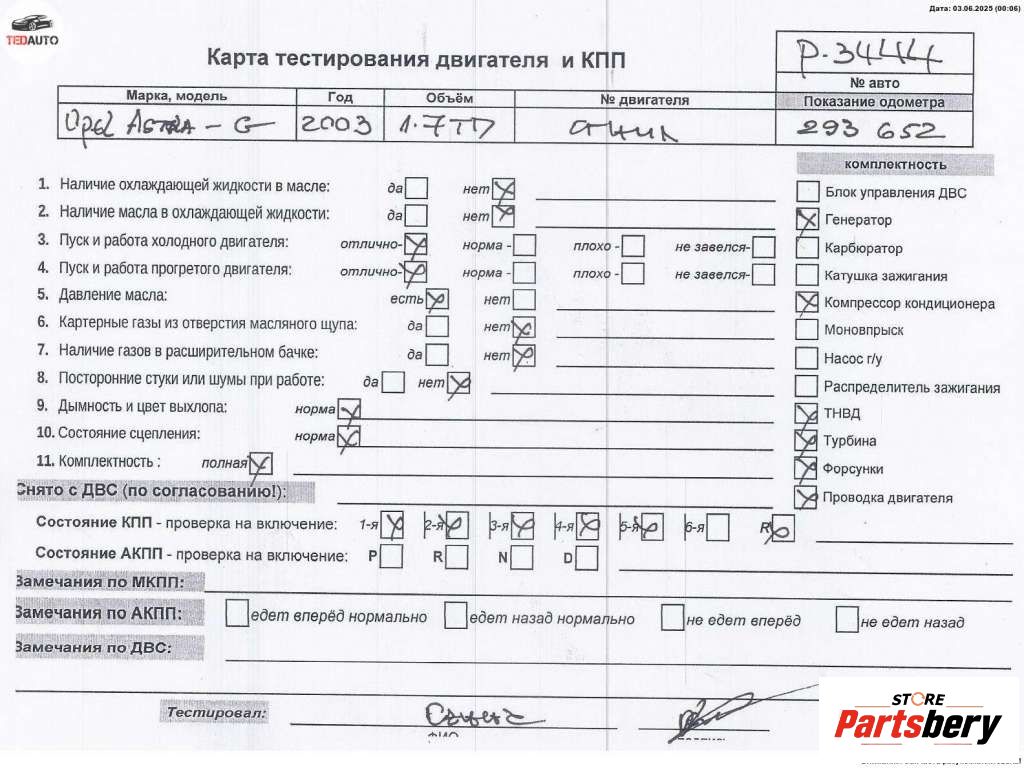 Дата: 03.06.2025 (00:06)
TEDAUTO
Карта тестирования двигателя и КПП
P-3444
№ авто
Марка, модель Год Объём № двигателя Показание одометра
Opel ASTRA - G 2003 1.7TD 293 652
комплектность
1. Наличие охлаждающей жидкости в масле: да нет
Блок управления ДВС
2. Наличие масла в охлаждающей жидкости: да нет
Генератор
3. Пуск и работа холодного двигателя: отлично- норма - плохо - не завелся-
Карбюратор
4. Пуск и работа прогретого двигателя: отлично- норма - плохо - не завелся-
Катушка зажигания
5. Давление масла: есть нет
Компрессор кондиционера
6. Картерные газы из отверстия масляного щупа: да нет
Моновпрыск
7. Наличие газов в расширительном бачке: да нет
Насос г/у
8. Посторонние стуки или шумы при работе: да нет
Распределитель зажигания
9. Дымность и цвет выхлопа: норма
ТНВД
10. Состояние сцепления: норма
Турбина
11. Комплектность : полная
Форсунки
Снято с ДВС (по согласованию!):
Проводка двигателя
Состояние КПП - проверка на включение: 1-я 2-я 3-я 4-я 5-я 6-я R
Состояние АКПП - проверка на включение: P R N D
Замечания по МКПП:
Замечания по АКПП: едет вперёд нормально едет назад нормально не едет вперёд не едет назад
Замечания по ДВС:
Тестировал:
ФИО
STORE
Partsbery